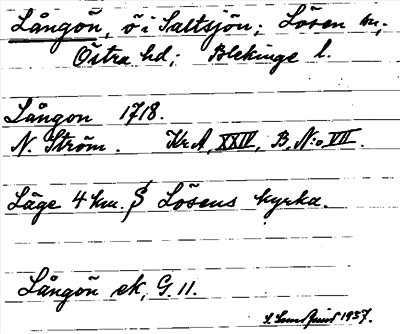 Långön, ö i Saltsjön; Lösen sn;
Östra hd; Blekinge l.
Långon 1718.
N. Ström. Kr A, XXIV, B, N:o VII.
Läge 4 km. S Lösens kyrka.
Långön ek, G. 11.
1937.